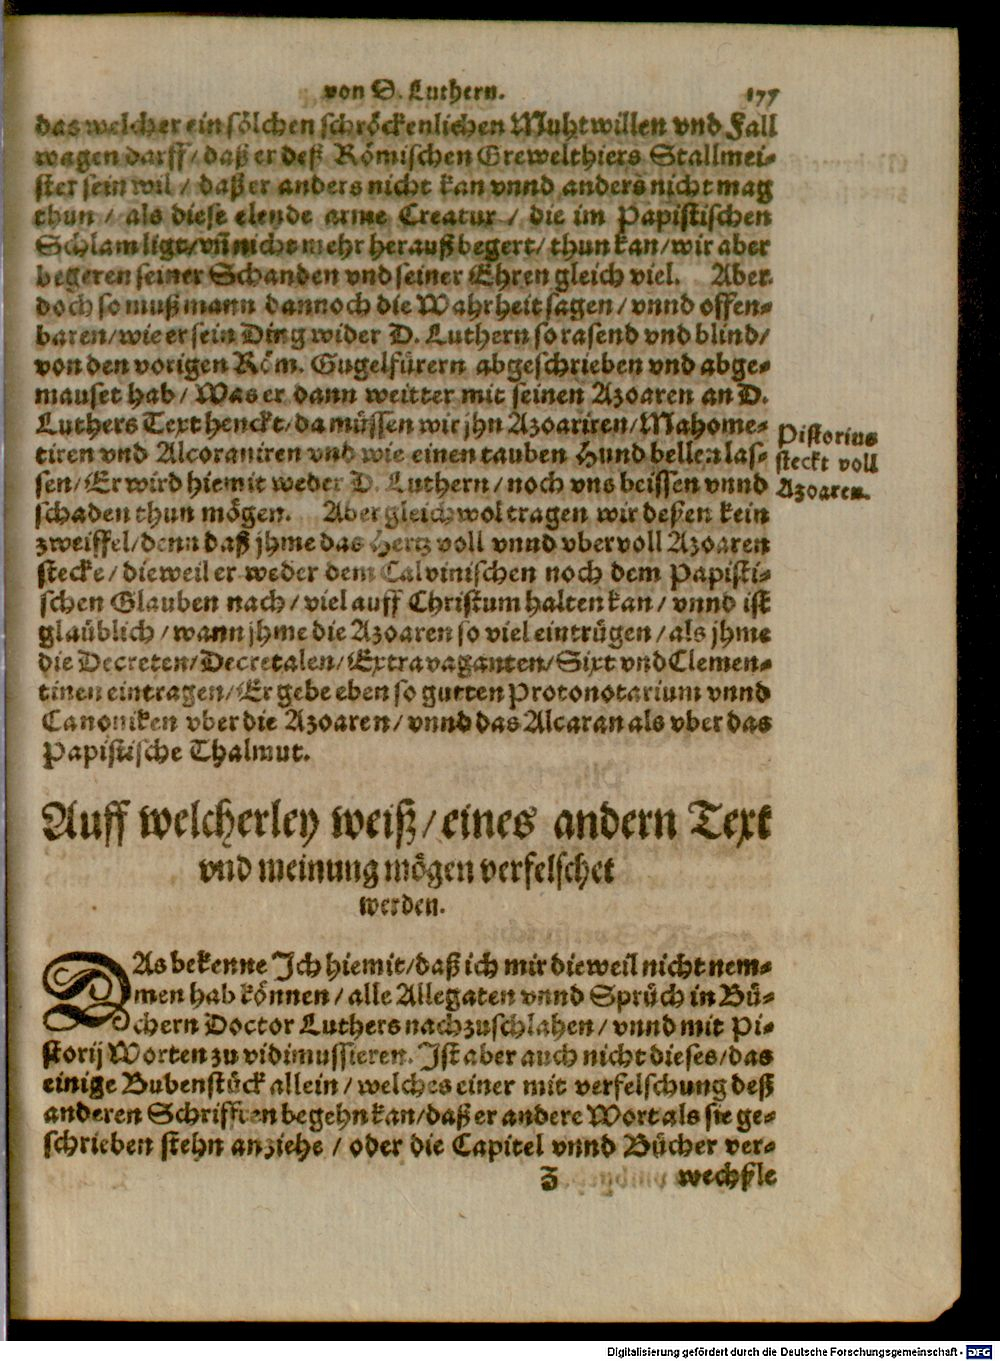 von D. Luthern. 177
das welcher ein sölchen schröckenlichen Muhtwillen vnd Fall
wagen darff/ daß er deß Römischen Grewelthiers Stallmei-
ster sein wil / daß er anders nicht kan vnnd anders nicht mag
thun / als diese elende arme Creatur / die im Papistischen
Schlam ligt/ vñ nicht mehr herauß begert/ thun kan/ wir aber
begeren seiner Schanden vnd seiner Ehren gleich viel. Aber
doch so muß mann dannoch die Wahrheit sagen / vnnd offen-
baren/ wie er sein Ding wider D. Luthern so rasend vnd blind/
von den vorigen Röm. Gugelfürern abgeschrieben vnd abge-
mauset hab / Was er dann weitter mit seinen Azoaren an D.
Luthers Text henckt/ da müssen wir jhn Azoariren/ Mahome-
tiren vnd Alcoraniren vnd wie einen tauben Hund bellen las-
sen/ Er wird hiemit weder D. Luthern / noch vns beissen vnnd
schaden thun mögen. Aber gleichwol tragen wir deßen kein
zweiffel/ denn daß jhme das Hertz voll vnnd vbervoll Azoaren
stecke / dieweil er weder dem Calvinischen noch dem Papisti-
schen Glauben nach / viel auff Christum halten kan / vnnd ist
glaüblich / wann jhme die Azoaren so viel eintrügen / als jhme
die Decreten/ Decretalen/ Extravaganten/ Sixt vnd Clemen-
tinen eintragen/ Er gebe eben so gutten Protonotarium vnnd
Canoniken vber die Azoaren/ vnnd das Alcaran als vber das
Papistische Thalmut.
Pistorius
steckt voll
Azoaren.
Auff welcherley weiß / eines andern Text
vnd meinung mögen verfelschet
werden.
DAs bekenne Ich hiemit/ daß ich mir dieweil nicht nem-
men hab können / alle Allegaten vnnd Sprüch in Bü-
chern Doctor Luthers nachzuschlahen / vnnd mit Pi-
storij Worten zu vidimussieren. Ist aber auch nicht dieses/ das
einige Bubenstück allein / welches einer mit verfelschung deß
anderen Schrifften begehn kan/ daß er andere Wort als sie ge-
schrieben stehn anziehe / oder die Capitel vnnd Bücher ver-
Z wechsle
Digitalisierung gefördert durch die Deutsche Forschungsgemeinschaft - DFG